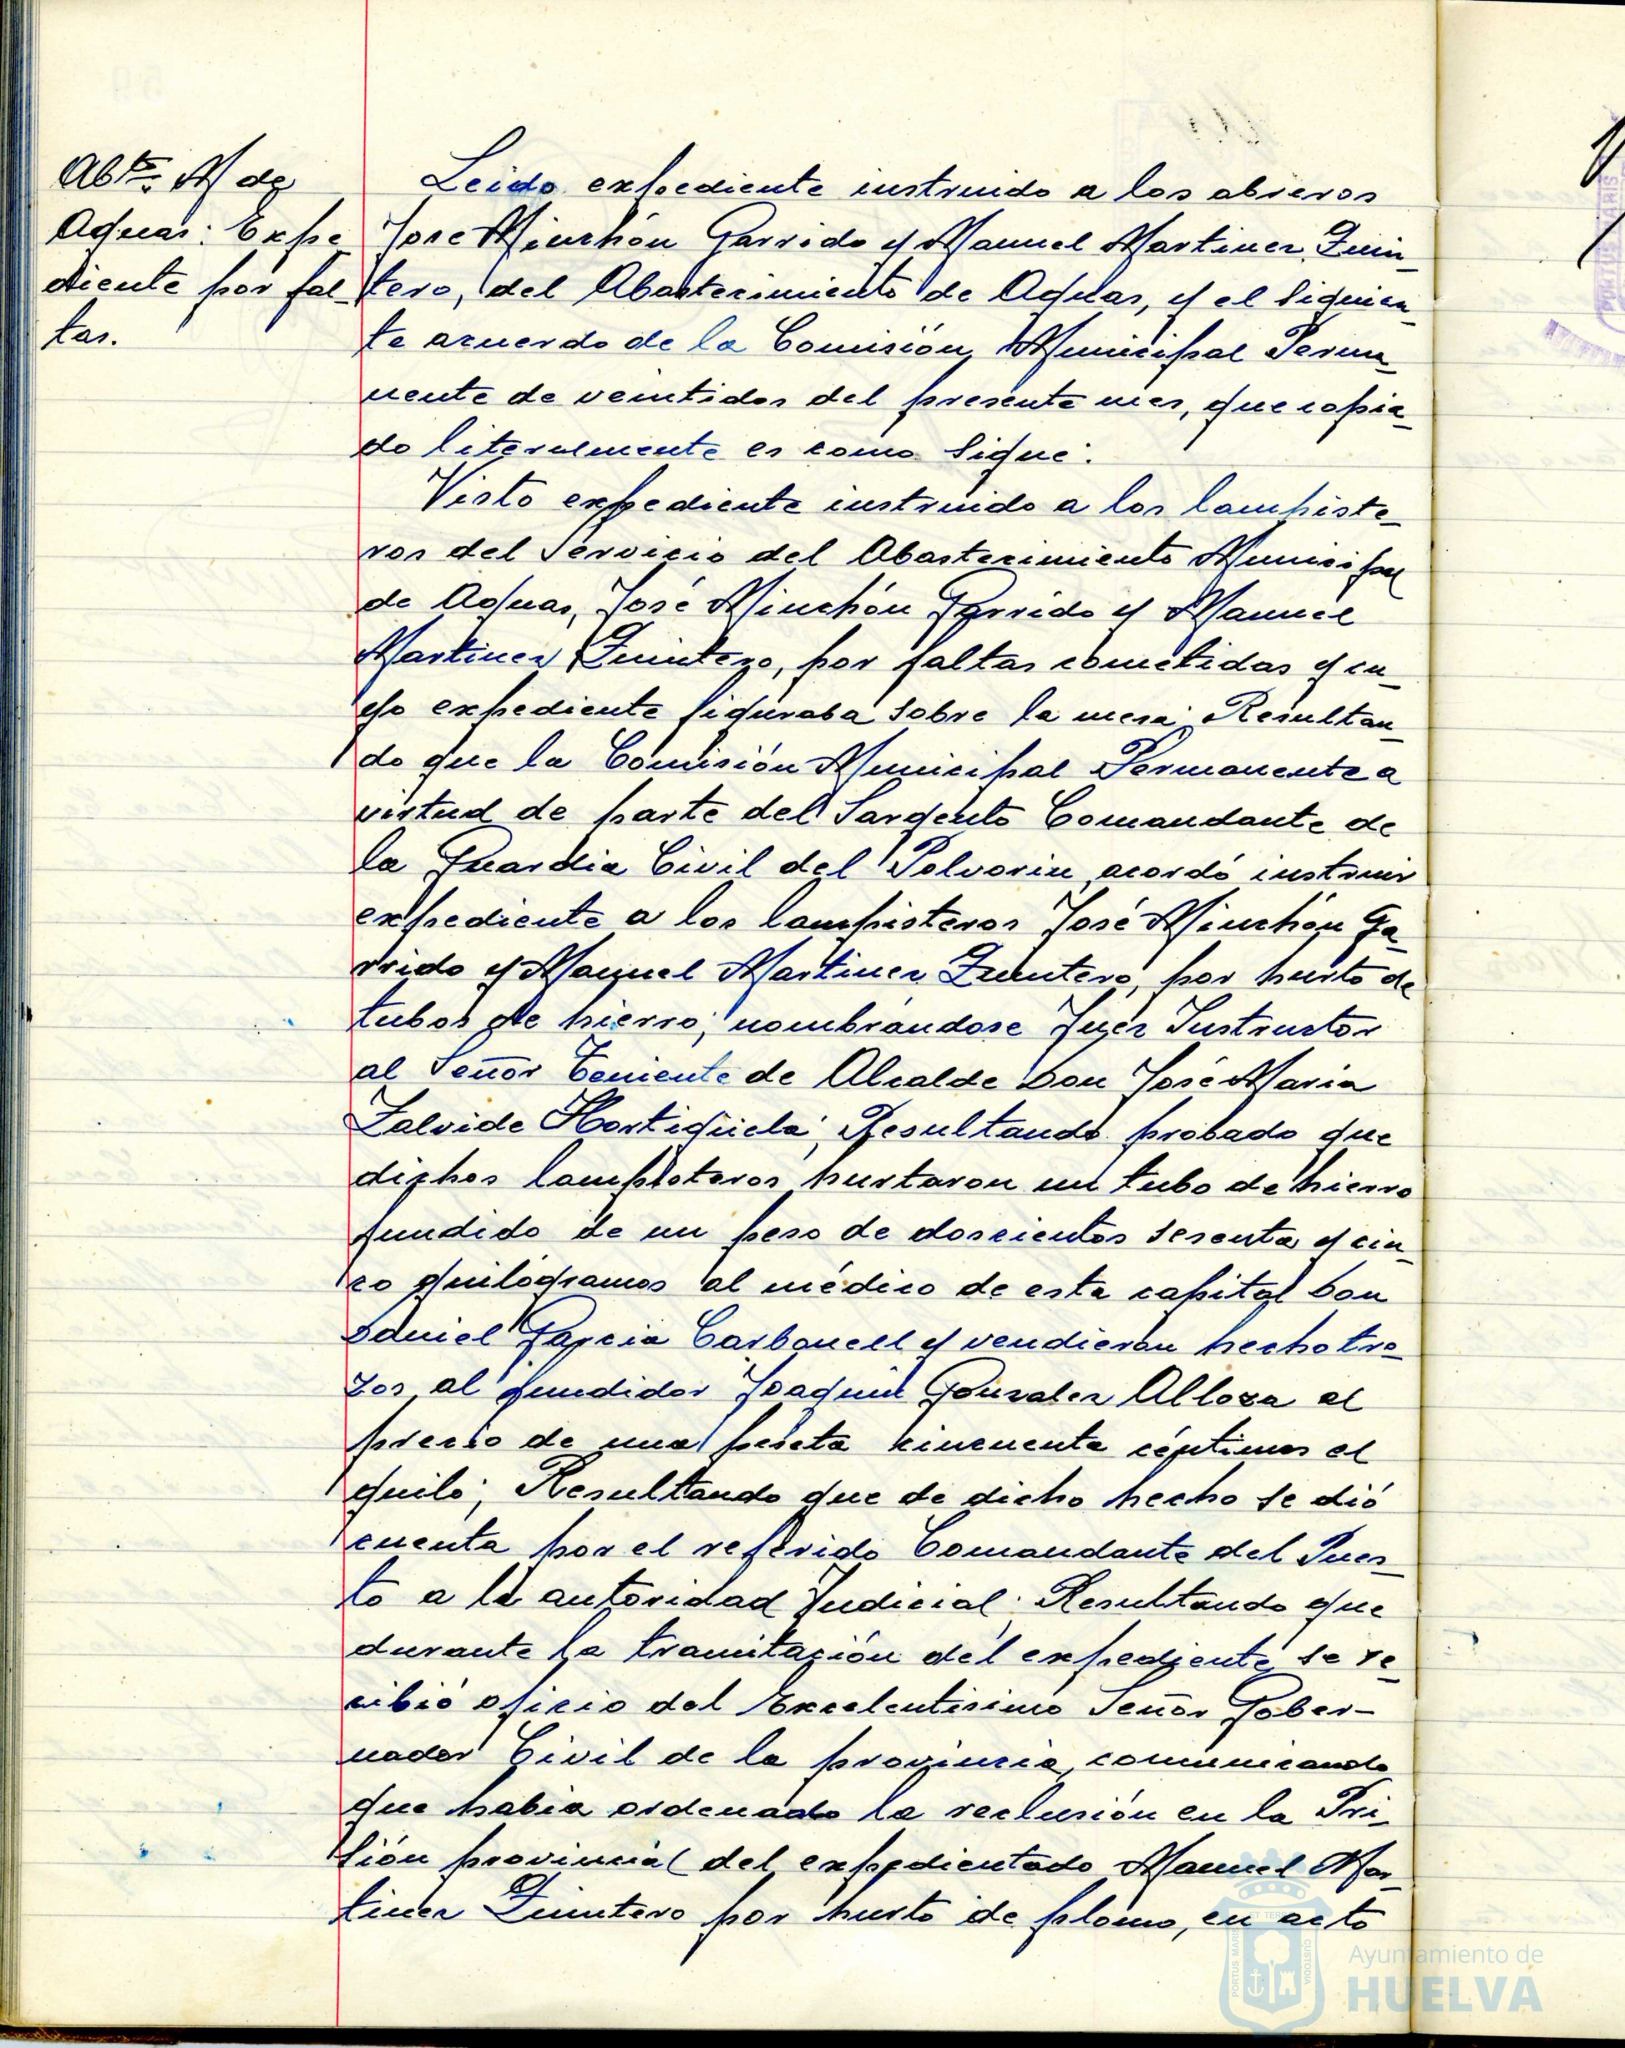 Abtº. M. de
Aguas: Expe
diente por fal-
tas.
Leido expediente instruido a los obreros
Jose Minchón Garrido y Manuel Martinez Quin-
tero, del Abastecimiento de Aguas, y el siguien-
te acuerdo de la Comisión Municipal Perma-
nente de veintidos del presente mes, que copia-
do literalmente es como sigue:
Visto expediente instruido a los lampiste-
ros del Servicio del Abastecimiento Municipal
de Aguas, José Minchón Garrido y Manuel
Martinez Quintero, por faltas cometidas y cu-
yo expediente figuraba sobre la mesa; Resultan-
do que la Comisión Municipal Permanente a
virtud de parte del Sargento Comandante de
la Guardia Civil del Polvorin acordó instruir
expediente a los lampisteros José Minchón Ga-
rrido y Manuel Martinez Quintero, por hurto de
tubos de hierro; nombrándose Juez Instructor
al Señor Teniente de Alcalde Don José Maria
Zalvide Hortigüela; Resultando probado que
dichos lampisteros hurtaron un tubo de hierro
fundido de un peso de doscientos sesenta y cin-
co quilógramos al médico de esta capital Don
Daniel Garcia Carbonell y vendieron hecho tro-
zos al fundidor Joaquin Gonzalez Alloza al
precio de una peseta cincuenta céntimos el
quilo; Resultando que de dicho hecho se dió
cuenta por el referido Comandante del Pues-
to a la autoridad Judicial; Resultando que
durante la tramitación del expediente se re-
cibió oficio del Excelentisimo Señor Gober-
nador Civil de la provincia, comunicando
que habia ordenado la reclusión en la Pri-
sión provincial del expedientado Manuel Mar-
tinez Quintero por hurto de plomo, en acto
Ayuntamiento de
HUELVA